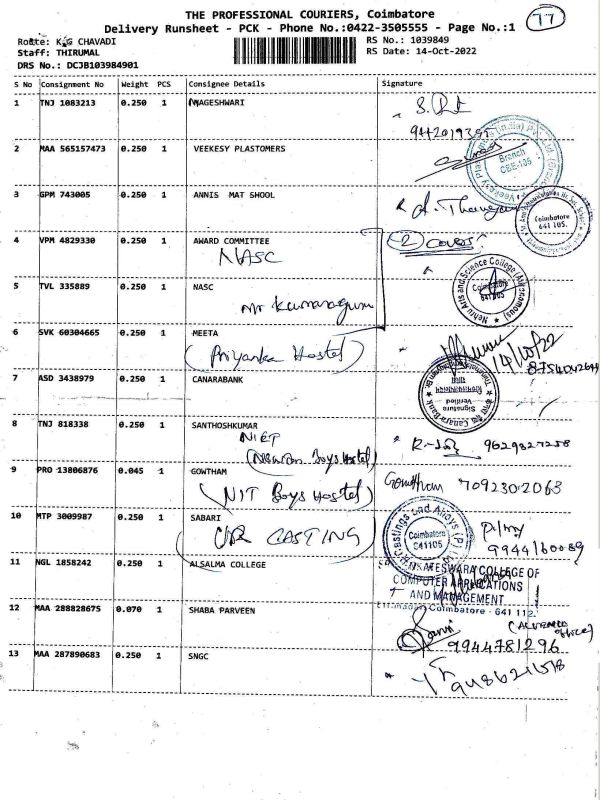 THE PROFESSIONAL COURIERS, Coimbatore
77
Delivery Runsheet - PCK - Phone No.:0422-3505555 - Page No.:1
Route: K.G CHAVADI
RS No.: 1039849
Staff: THIRUMAL
RS Date: 14-Oct-2022
DRS No.: DCJB103984901
S No Consignment No Weight PCS Consignee Details Signature
1 TNJ 1083213 0.250 1 NAGESHWARI
2 MAA 565157473 0.250 1 VEEKESY PLASTOMERS
Branch
CBE-105
3 GPM 743005 0.250 1 ANNIS MAT SHOOL
Coimbatore
641 105.
4 VPM 4829330 0.250 1 AWARD COMMITTEE
NASC
2 covers
5 TVL 335889 0.250 1 NASC
Nehru Arts and Science College (Autonomous)
Coimbatore
641 105
Mr Kumaraguru
6 SVK 60304665 0.250 1 MEETA
(Priyanka Hostel)
14/10/22
7 ASD 3438979 0.250 1 CANARABANK
Canara Bank
Signature
Verified
8 TNJ 818338 0.250 1 SANTHOSHKUMAR
NIET
Boys Hostel)
9629827258
9 PRO 13806876 0.045 1 GOWTHAM
(NIT Boys Hostel)
Gowtham 7092302063
10 MTP 3009987 0.250 1 SABARI
UR CASTING
Castings and Alloys (P)
Coimbatore
641105
9944160089
11 NGL 1858242 0.250 1 ALSALMA COLLEGE
COLLEGE OF
COMPUTER APPLICATIONS
AND MANAGEMENT
Coimbatore - 641 112.
12 MAA 288828675 0.070 1 SHABA PARVEEN
9944781296
13 MAA 287890683 0.250 1 SNGC